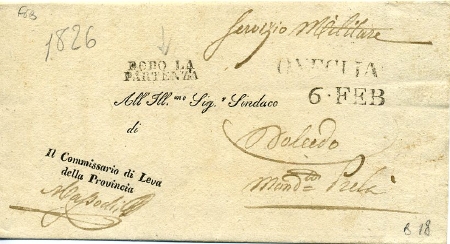 FEB
1826
Servizio Militare
DOPO LA
PARTENZA
ONEGLIA
6·FEB
All' Ill.mo Sig.r Sindaco
di
Dolcedo
Il Commissario di Leva
della Provincia
Mand.to Prelà
B 18